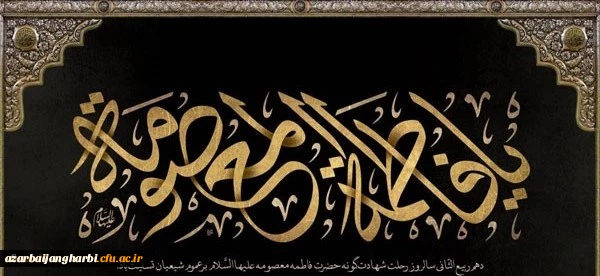 یا فاطمة المعصومة
علیها السلام
دهم ربیع الثانی سالروز رحلت شهادت‌گونه حضرت فاطمه معصومه علیها السلام بر عموم شیعیان تسلیت باد
azarbaijangharbi.cfu.ac.ir